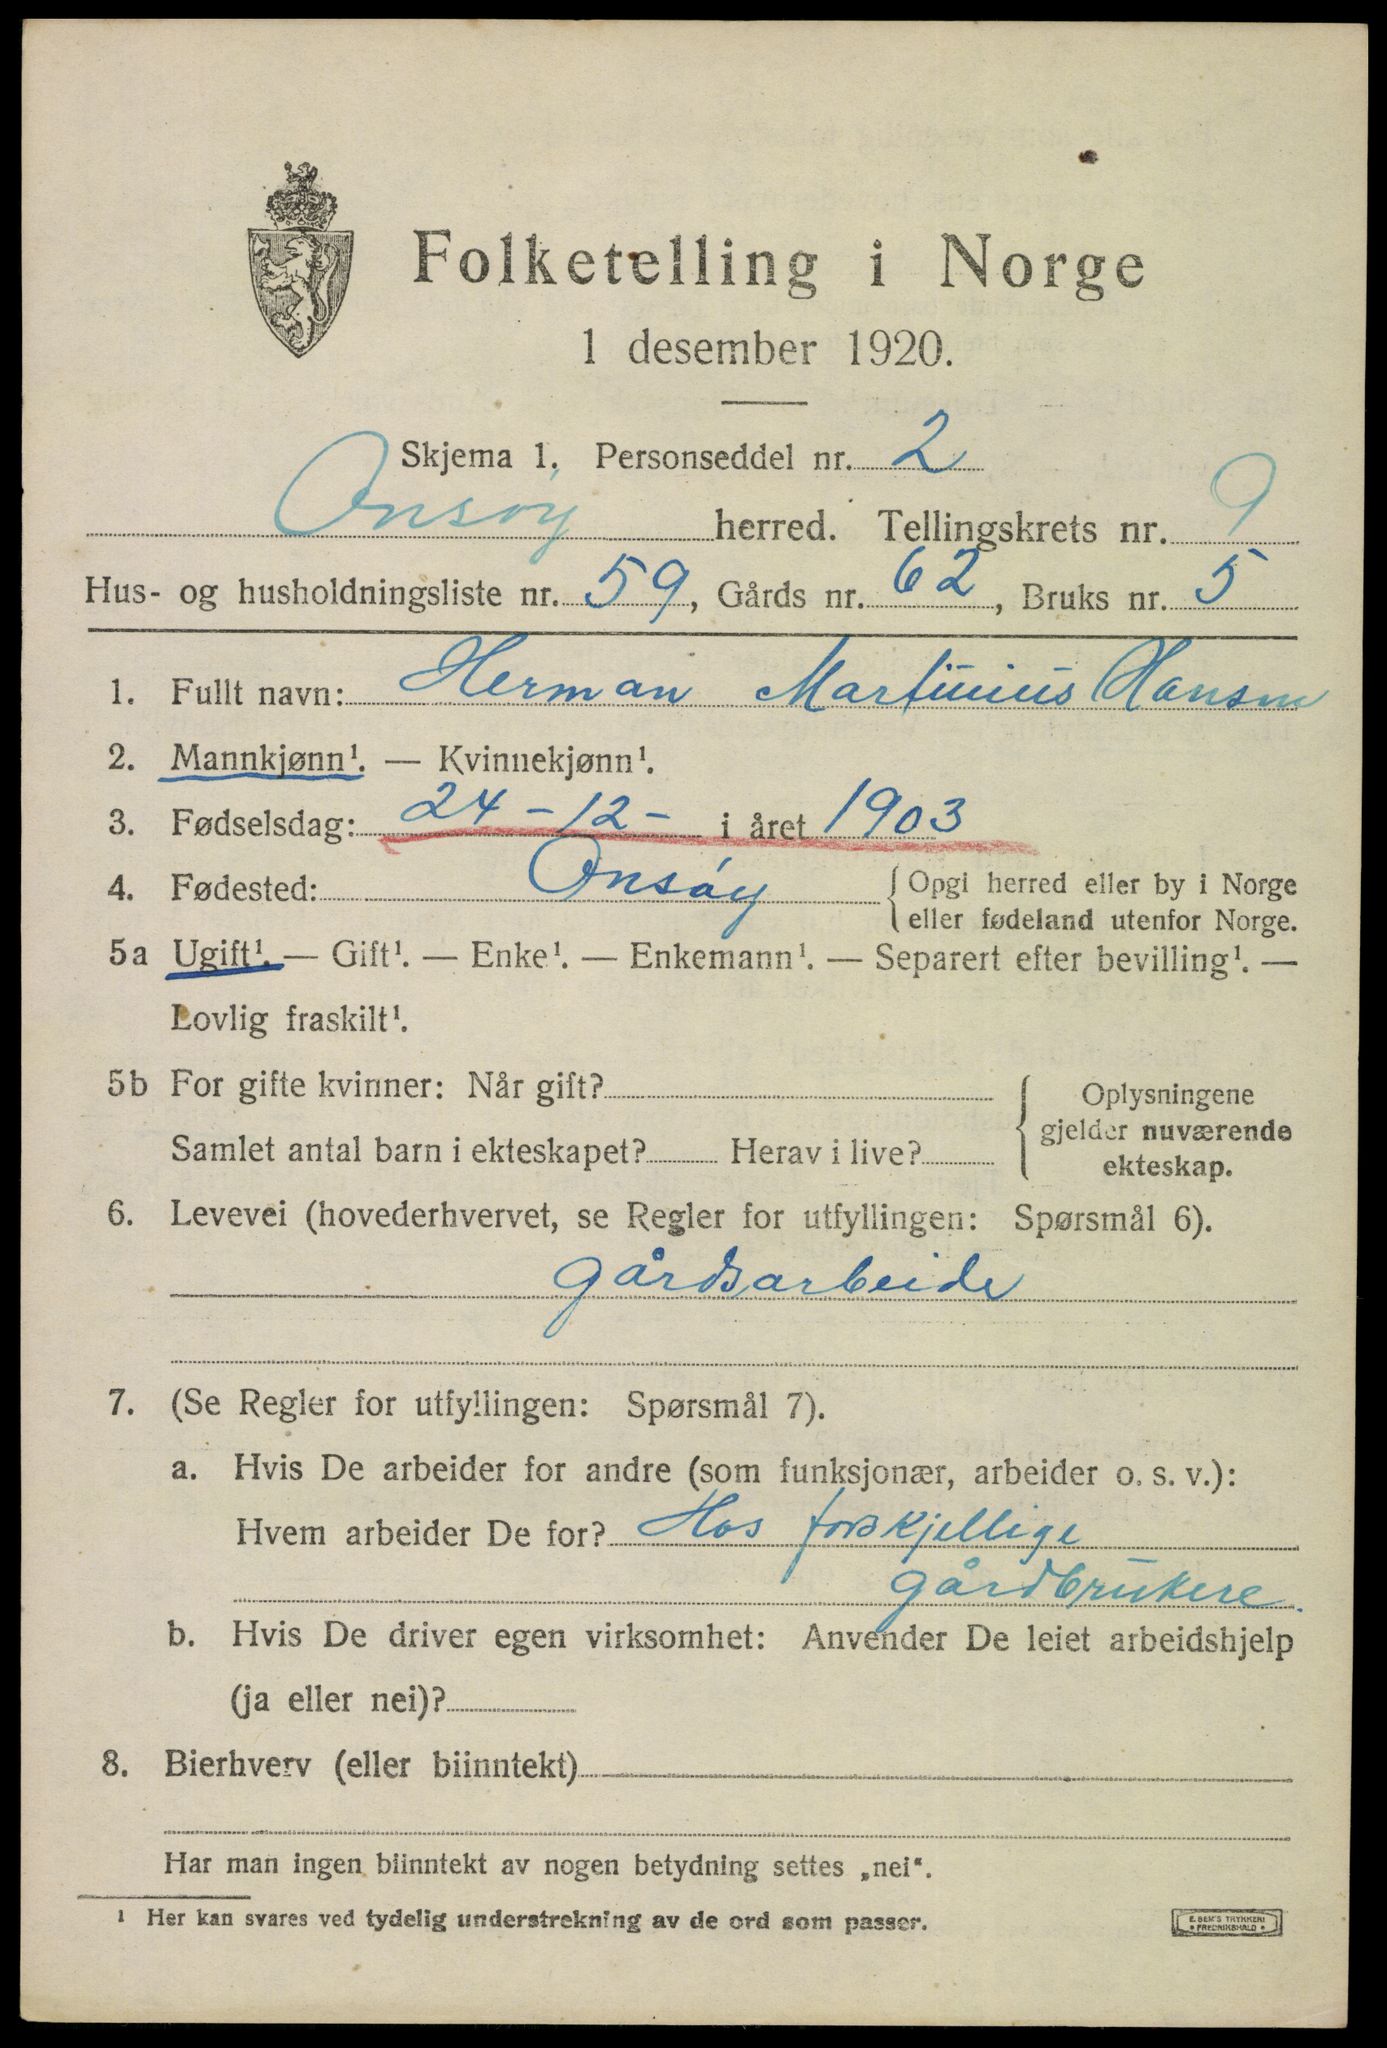 Folketelling i Norge
1 desember 1920.
Skjema 1. Personseddel nr. 2
Onsöy herred. Tellingskrets nr. 9
Hus- og husholdningsliste nr. 59, Gårds nr. 62, Bruks nr. 5
1. Fullt navn: Herman Martinius Hansen
2. Mannkjønn¹. — Kvinnekjønn¹.
3. Fødselsdag: 24-12- i året 1903
4. Fødested: Onsöy { Opgi herred eller by i Norge
eller fødeland utenfor Norge.
5a Ugift¹. — Gift¹. — Enke¹. — Enkemann¹. — Separert efter bevilling¹. —
Lovlig fraskilt¹.
5b For gifte kvinner: Når gift? { Oplysningene
gjelder nuværende
Samlet antal barn i ekteskapet? Herav i live? ekteskap.
6. Levevei (hovederhvervet, se Regler for utfyllingen: Spørsmål 6).
gårdsarbeide
7. (Se Regler for utfyllingen: Spørsmål 7).
a. Hvis De arbeider for andre (som funksjonær, arbeider o. s. v.):
Hvem arbeider De for? Hos forskjellige
gårdbrukere.
b. Hvis De driver egen virksomhet: Anvender De leiet arbeidshjelp
(ja eller nei)?
8. Bierhverv (eller biinntekt)
Har man ingen biinntekt av nogen betydning settes „nei“.
¹ Her kan svares ved tydelig understrekning av de ord som passer.
E. SEM'S TRYKKERI
• FREDRIKSHALD •